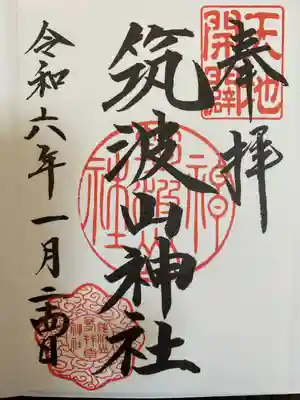 天地
開闢
奉拝
筑波山神社
令和六年一月二四日